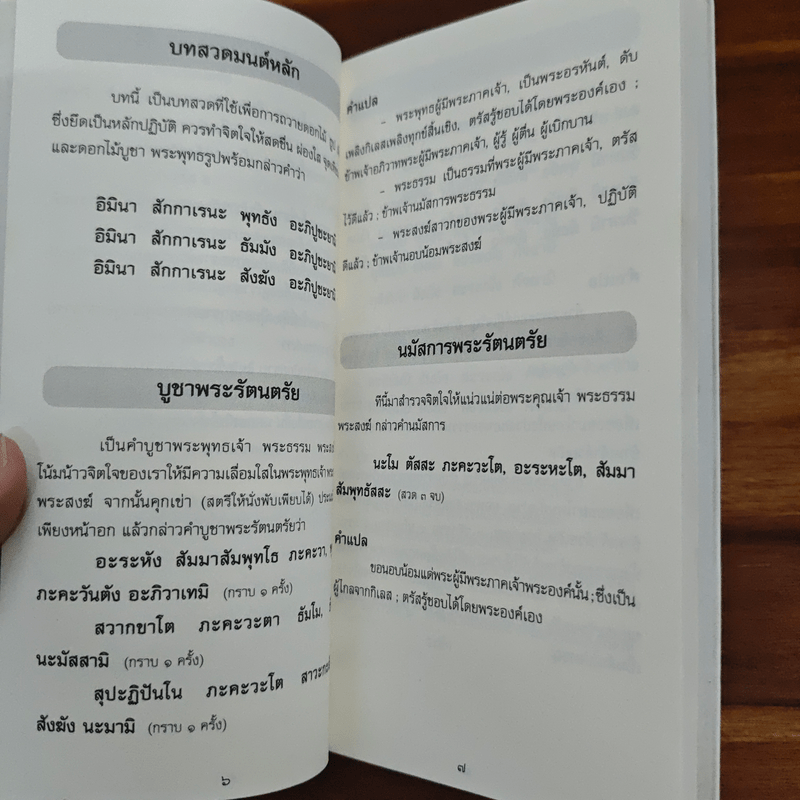 บทสวดมนต์หลัก
บทนี้ เป็นบทสวดที่ใช้เพื่อการถวายดอกไม้
ซึ่งยึดเป็นหลักปฏิบัติ ควรทำจิตใจให้สดชื่น ผ่องใส
และดอกไม้บูชา พระพุทธรูปพร้อมกล่าวคำว่า
อิมินา สักกาเรนะ พุทธัง อะภิปูชะยามิ
อิมินา สักกาเรนะ ธัมมัง อะภิปูชะยามิ
อิมินา สักกาเรนะ สังฆัง อะภิปูชะยามิ
บูชาพระรัตนตรัย
เป็นคำบูชาพระพุทธเจ้า พระธรรม
โน้มน้าวจิตใจของเราให้มีความเลื่อมใสในพระพุทธเจ้า
พระสงฆ์ จากนั้นคุกเข่า (สตรีให้นั่งพับเพียบได้)
เพียงหน้าอก แล้วกล่าวคำบูชาพระรัตนตรัยว่า
อะระหัง สัมมาสัมพุทโธ ภะคะวา,
ภะคะวันตัง อะภิวาเทมิ (กราบ ๑ ครั้ง)
สวากขาโต ภะคะวะตา ธัมโม,
นะมัสสามิ (กราบ ๑ ครั้ง)
สุปะฏิปันโน ภะคะวะโต
สังฆัง นะมามิ (กราบ ๑ ครั้ง)
๖
คำแปล
- พระพุทธผู้มีพระภาคเจ้า, เป็นพระอรหันต์, ดับ
เพลิงกิเลสเพลิงทุกข์สิ้นเชิง, ตรัสรู้ชอบได้โดยพระองค์เอง ;
ข้าพเจ้าอภิวาทพระผู้มีพระภาคเจ้า, ผู้รู้ ผู้ตื่น ผู้เบิกบาน
- พระธรรม เป็นธรรมที่พระผู้มีพระภาคเจ้า, ตรัส
ไว้ดีแล้ว ; ข้าพเจ้านมัสการพระธรรม
- พระสงฆ์สาวกของพระผู้มีพระภาคเจ้า, ปฏิบัติ
ดีแล้ว ; ข้าพเจ้านอบน้อมพระสงฆ์
นมัสการพระรัตนตรัย
ทีนี้มาสำรวจจิตใจให้แน่วแน่ต่อพระคุณเจ้า พระธรรม
พระสงฆ์ กล่าวคำนมัสการ
นะโม ตัสสะ ภะคะวะโต, อะระหะโต, สัมมา
สัมพุทธัสสะ (สวด ๓ จบ)
คำแปล
ขอนอบน้อมแด่พระผู้มีพระภาคเจ้าพระองค์นั้น ; ซึ่งเป็น
ผู้ไกลจากกิเลส ; ตรัสรู้ชอบได้โดยพระองค์เอง
๗